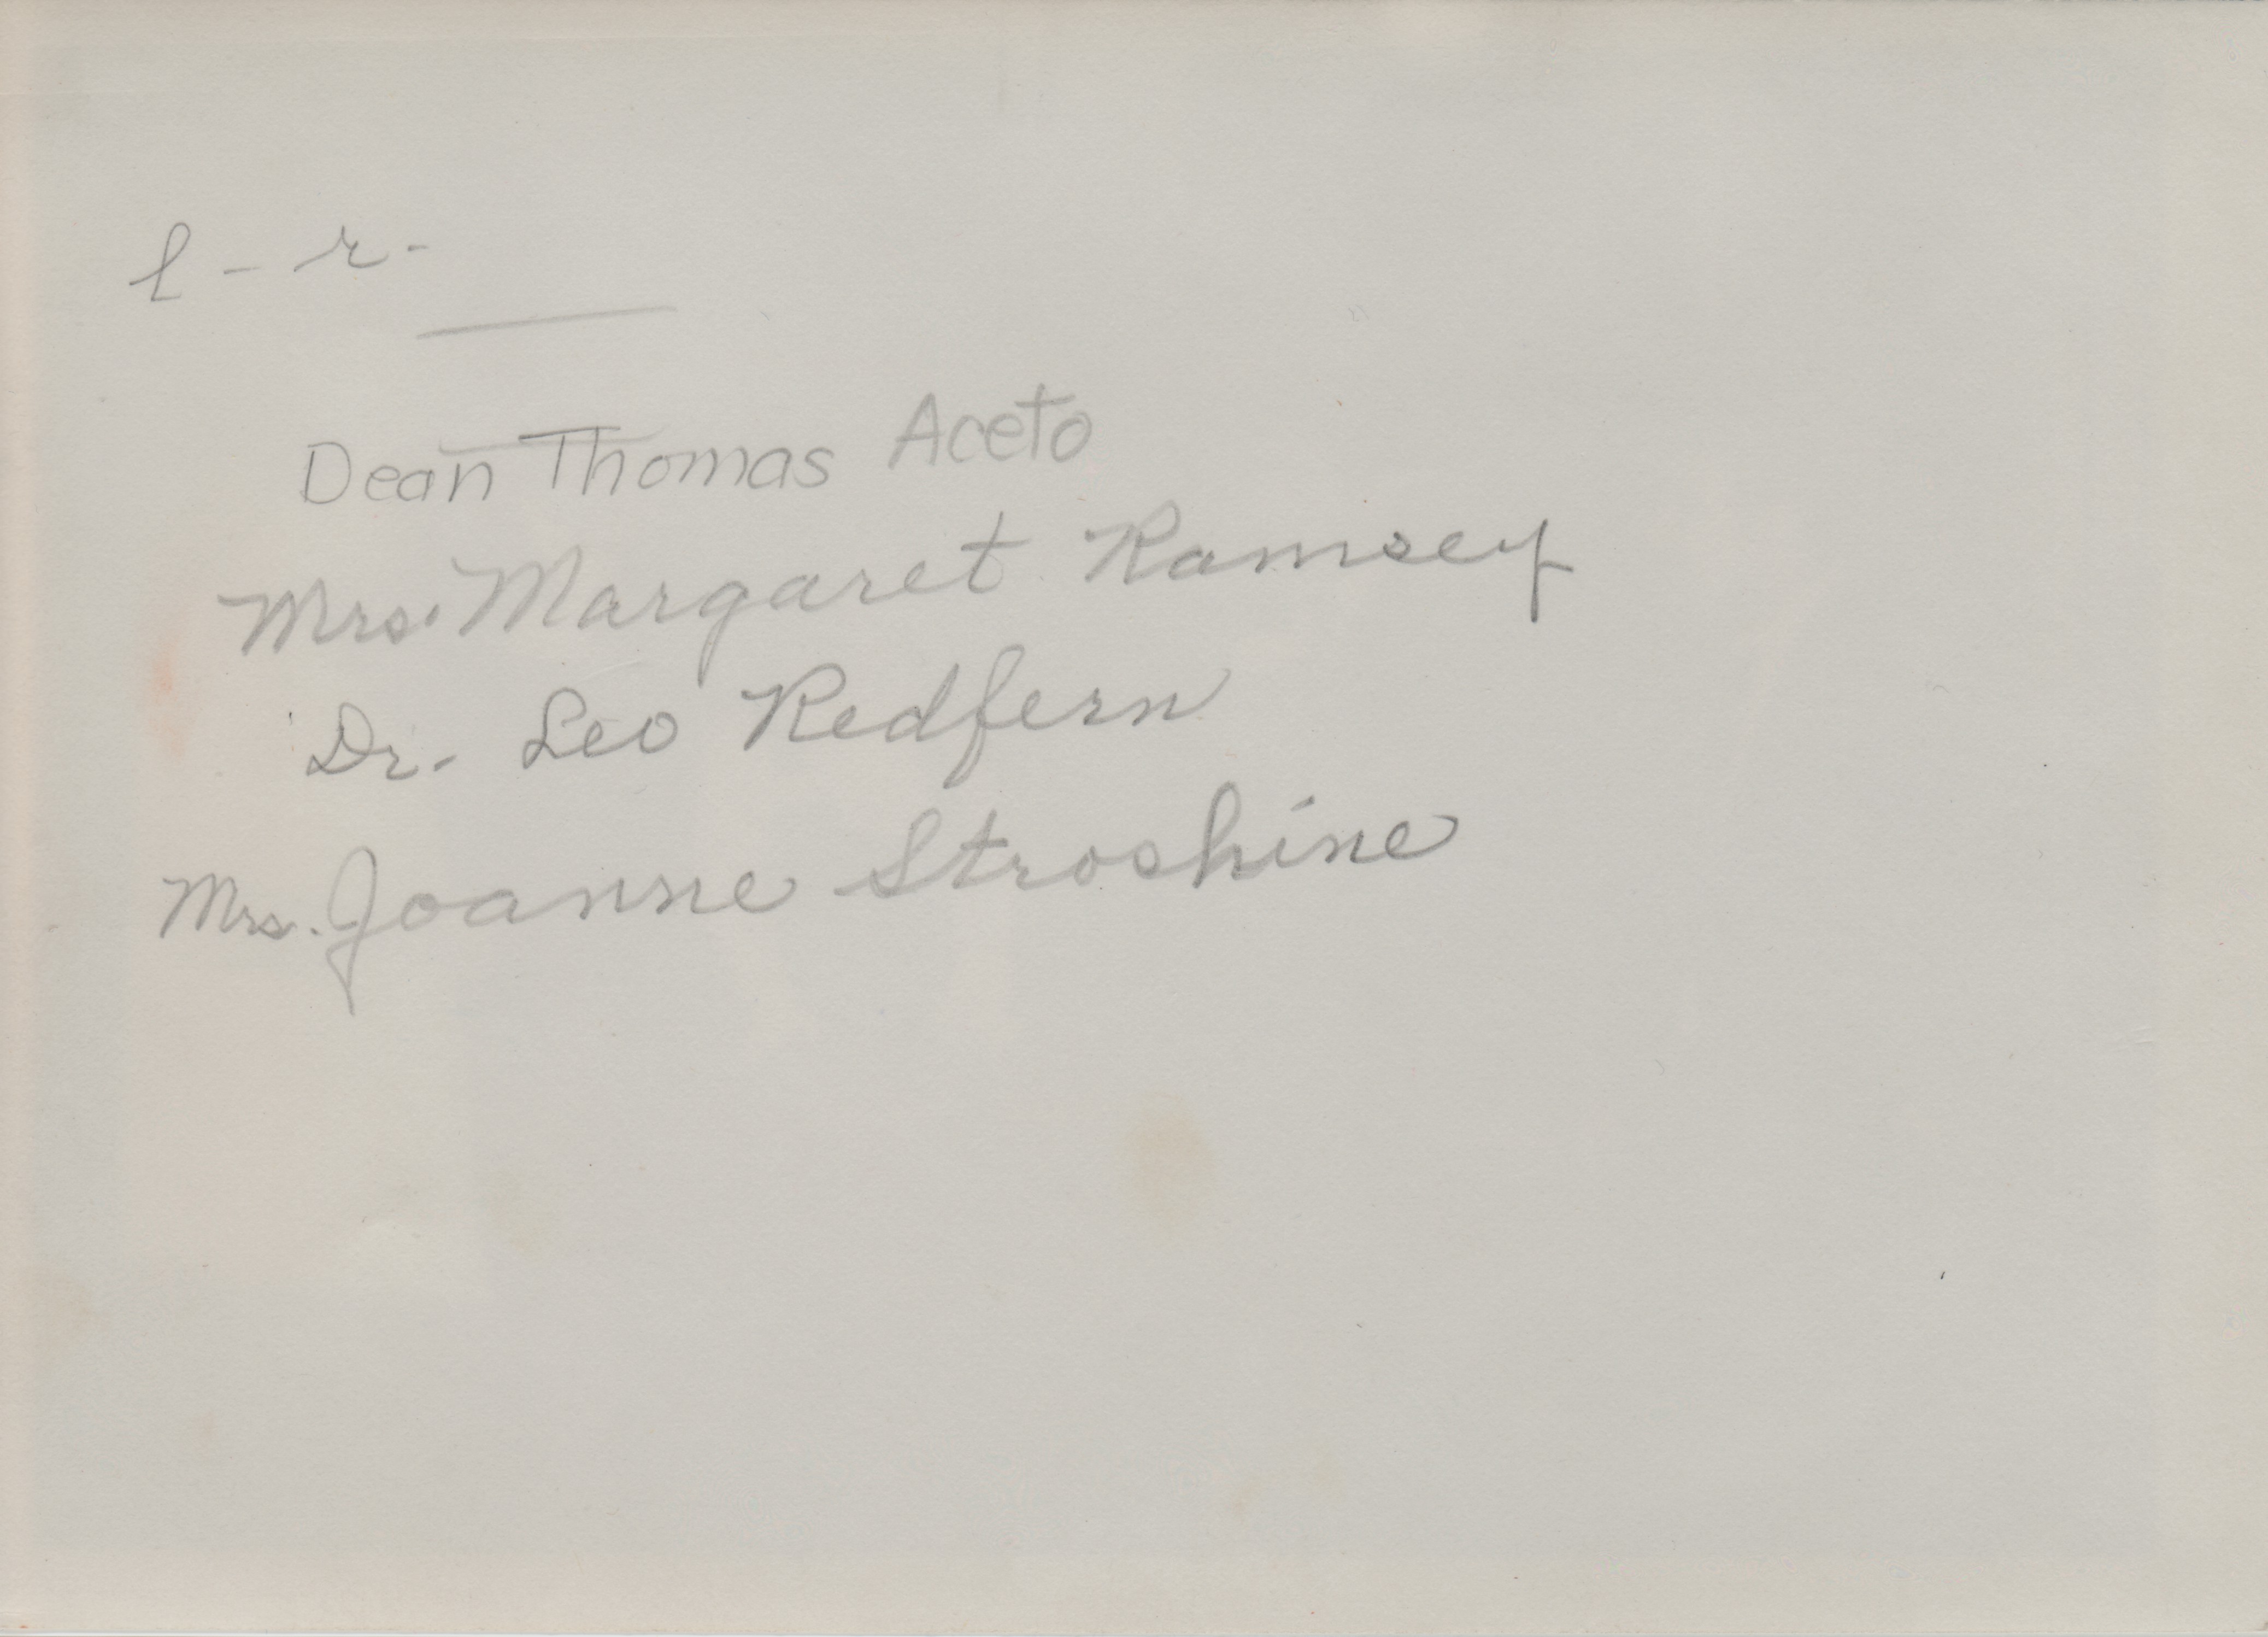 l - r -
Dean Thomas Aceto
Mrs. Margaret Ramsey
Dr. Leo Redfern
Mrs. Joanne Stroshine